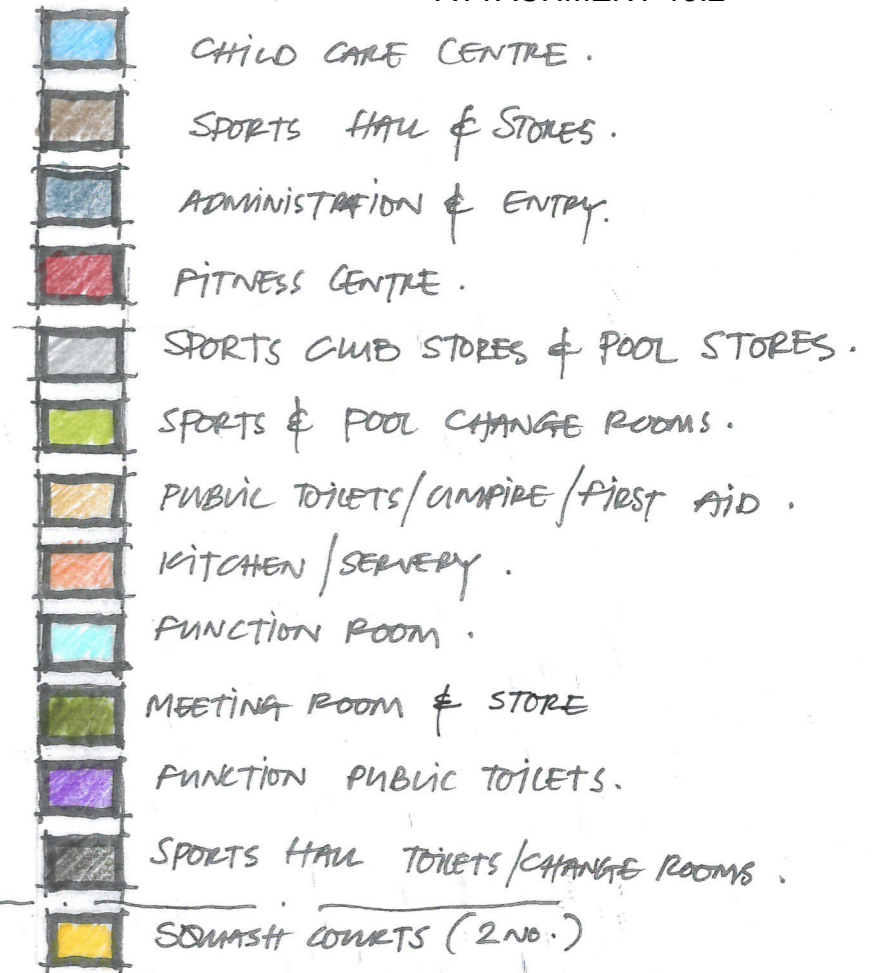 CHILD CARE CENTRE.
SPORTS HALL & STORES.
ADMINISTRATION & ENTRY.
FITNESS CENTRE.
SPORTS CLUB STORES & POOL STORES.
SPORTS & POOL CHANGE ROOMS.
PUBLIC TOILETS/UMPIRE/FIRST AID.
KITCHEN/SERVERY.
FUNCTION ROOM.
MEETING ROOM & STORE
FUNCTION PUBLIC TOILETS.
SPORTS HALL TOILETS/CHANGE ROOMS.
SQUASH COURTS (2 NO.)